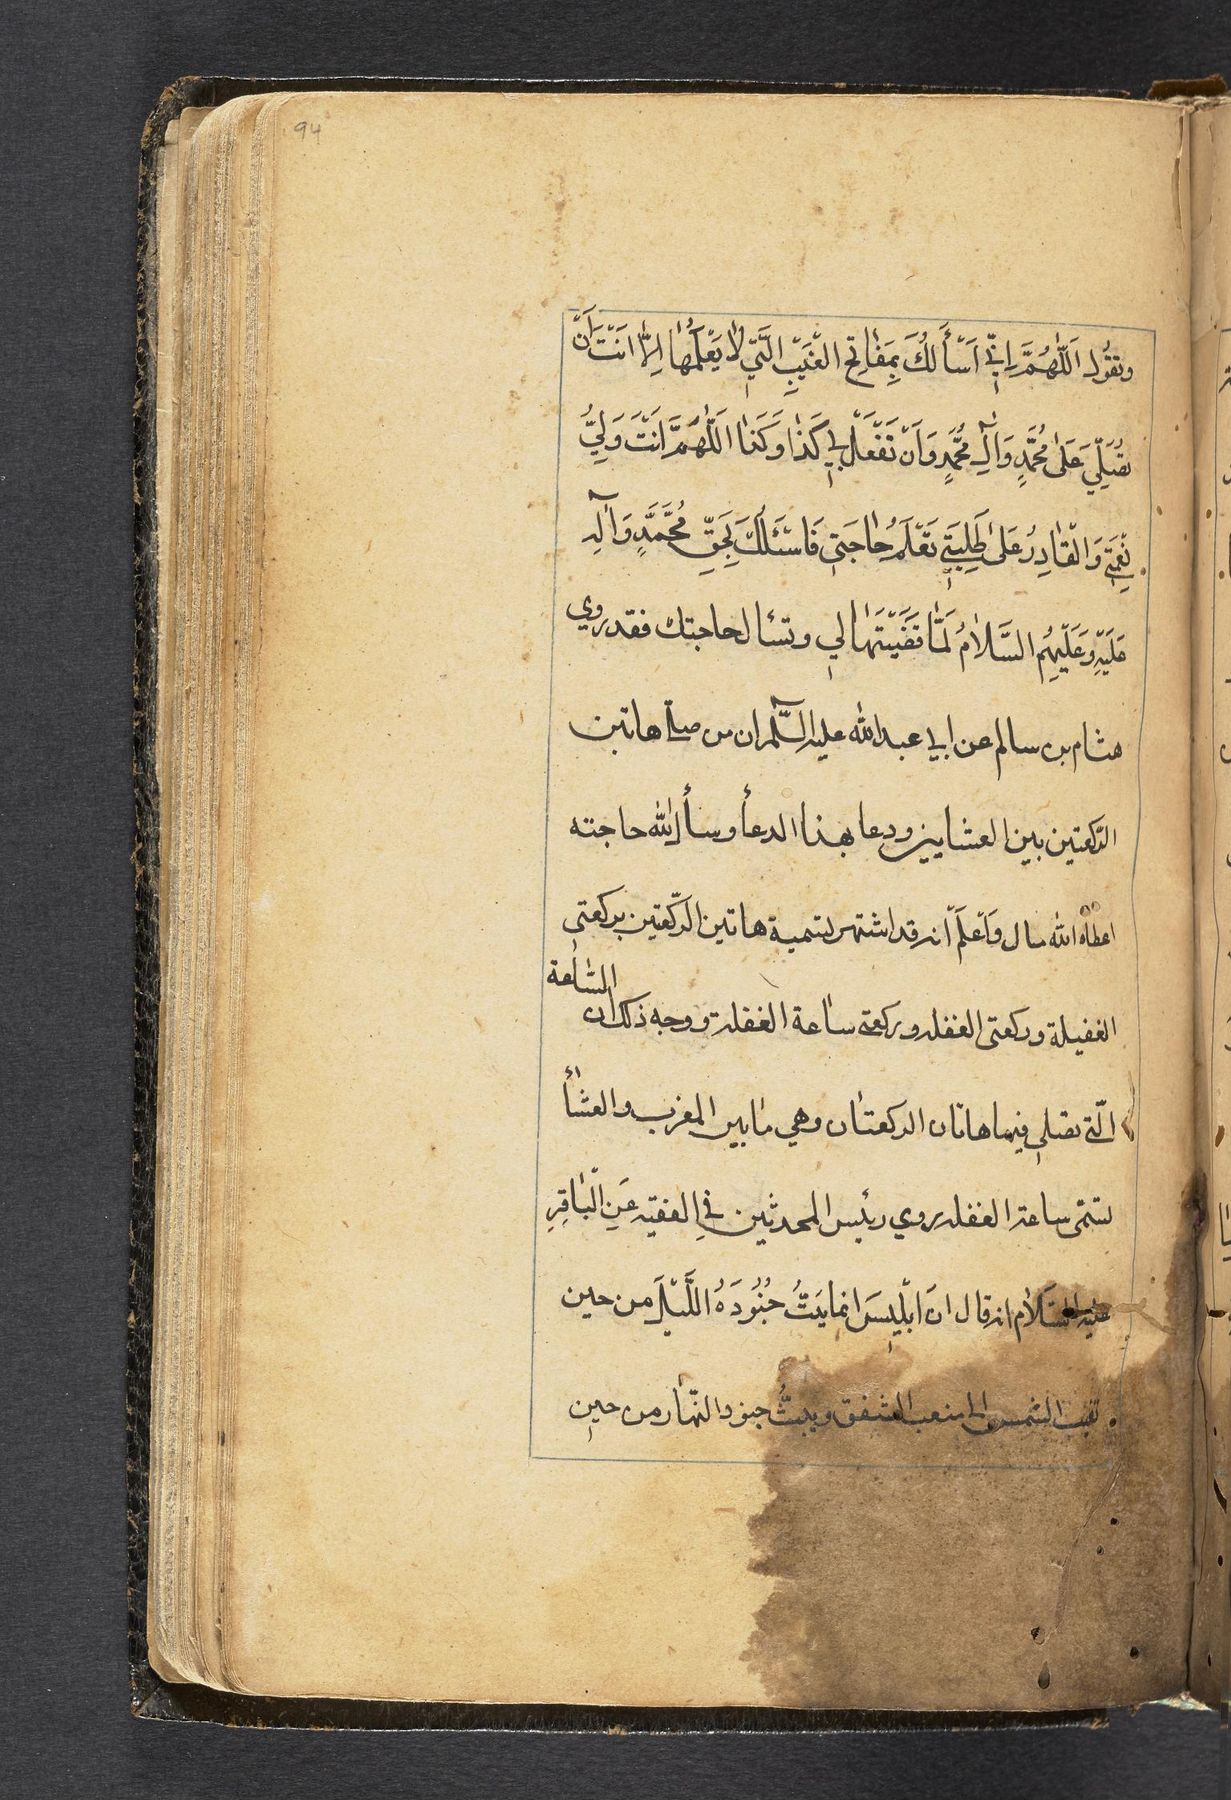 94
وتقول اَللّٰهُمَّ اِنّي اَسْأَلُكَ بِمَفٰاتِحِ الغَيْبِ الَّتي لٰا يَعْلَمُهٰا اِلّٰا اَنْتَ اَنْ
تُصَلِّيَ عَلىٰ مُحَمَّدٍ وَاٰلِ مُحَمَّدٍ وَاَنْ تَفْعَلَ بي كَذٰا وَكَذٰا اَللّٰهُمَّ اَنْتَ وَلِيُّ
نِعْمَتي وَالْقٰادِرُ عَلىٰ طَلِبَتي تَعْلَمُ حٰاجَتي فَاَسْئَلُكَ بِحَقِّ مُحَمَّدٍ وَاٰلِهِ
عَلَيْهِ وَعَلَيْهِمُ السَّلٰامُ لَمّٰا قَضَيْتَهٰا لي وتسٔال حاجتك فقد روي
هشام بن سالم عن ابي عبدالله عليه السّلم ان من صلى هاتين
الرّكعتين بين العشايين ودعا بهذا الدعأ وسأل الله حاجته
اعطاه الله ماسال وَاعْلَمْ انه قد اشتهر تسمية هاتين الرّكعتين بركعتي
الغفيلة وركعتي الغفله وركعتي ساعة الغفلة ووجه ذلك ان الساعة
الّتي تصلى فيها هاتان الركعتان وهي مٰا بين المغرب والعشأ
تسمّى ساعة الغفله روي رئيس المحدثين في الفقيه عَنِ الْبٰاقِرِ
عليه السَلٰام انه قال انَ ابْليسَ انما يَبُثُّ جُنُودَهُ اللَّيْلَ من حين
تغيب الشمس الى مغيب الشفق ويبثُّ جنود النّهار من حين